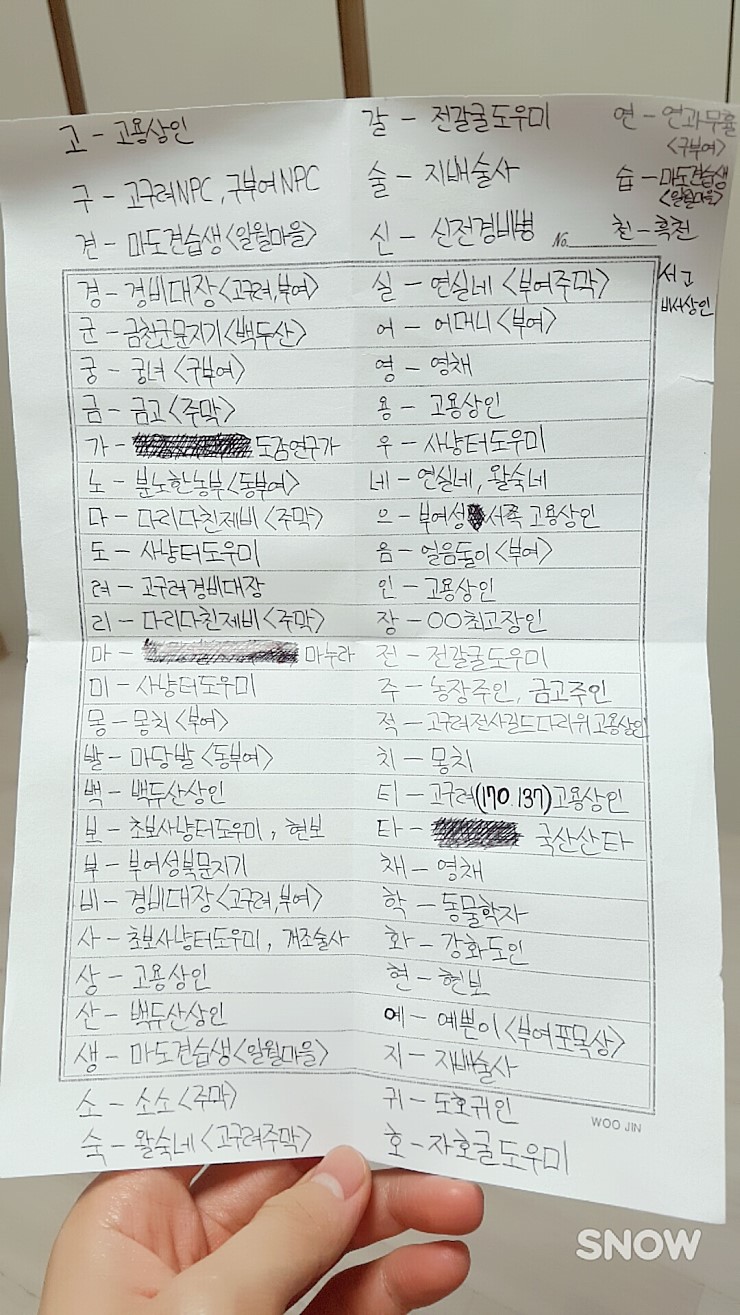 고 - 고용상인
구 - 고구려NPC, 구부여NPC
견 - 마도견습생<일월마을>
경 - 경비대장<고구려,부여>
군 - 금천군문지기<백두산>
궁 - 궁녀<구부여>
금 - 금고<주막>
가 - 도감연구가
노 - 분노한농부<동부여>
다 - 다리다친제비<주막>
도 - 사냥터도우미
려 - 고구려경비대장
리 - 다리다친제비<주막>
마 - 마누라
미 - 사냥터도우미
뭉 - 뭉치<부여>
발 - 마당발<동부여>
백 - 백두산상인
보 - 초보사냥터도우미, 현보
부 - 부여성북문지기
비 - 경비대장<고구려,부여>
사 - 초보사냥터도우미, 개조술사
상 - 고용상인
산 - 백두산상인
생 - 마도견습생<일월마을>
소 - 소소<주막>
숙 - 왈숙네<고구려주막>
갈 - 전갈굴도우미
술 - 지배술사
신 - 신전경비병
No.
실 - 연실네<부여주막>
어 - 어머니<부여>
영 - 영채
용 - 고용상인
우 - 사냥터도우미
네 - 연실네, 왈숙네
으 - 부여성서쪽 고용상인
음 - 얼음둘이<부여>
인 - 고용상인
장 - OO최고장인
전 - 전갈굴도우미
주 - 농장주인, 금고주인
적 - 고구려전사길드다리위고용상인
치 - 뭉치
티 - 고구려(170.137)고용상인
타 - 국산산타
채 - 영채
학 - 동물학자
화 - 강화도인
현 - 현보
예 - 예쁜이<부여포목상>
지 - 지배술사
귀 - 도호귀인
호 - 자호굴도우미
연 - 연과무휼
<구부여>
습 - 마도견습생
<일월마을>
천 - 흑천
서고
비서상인
WOO JIN
SNOW